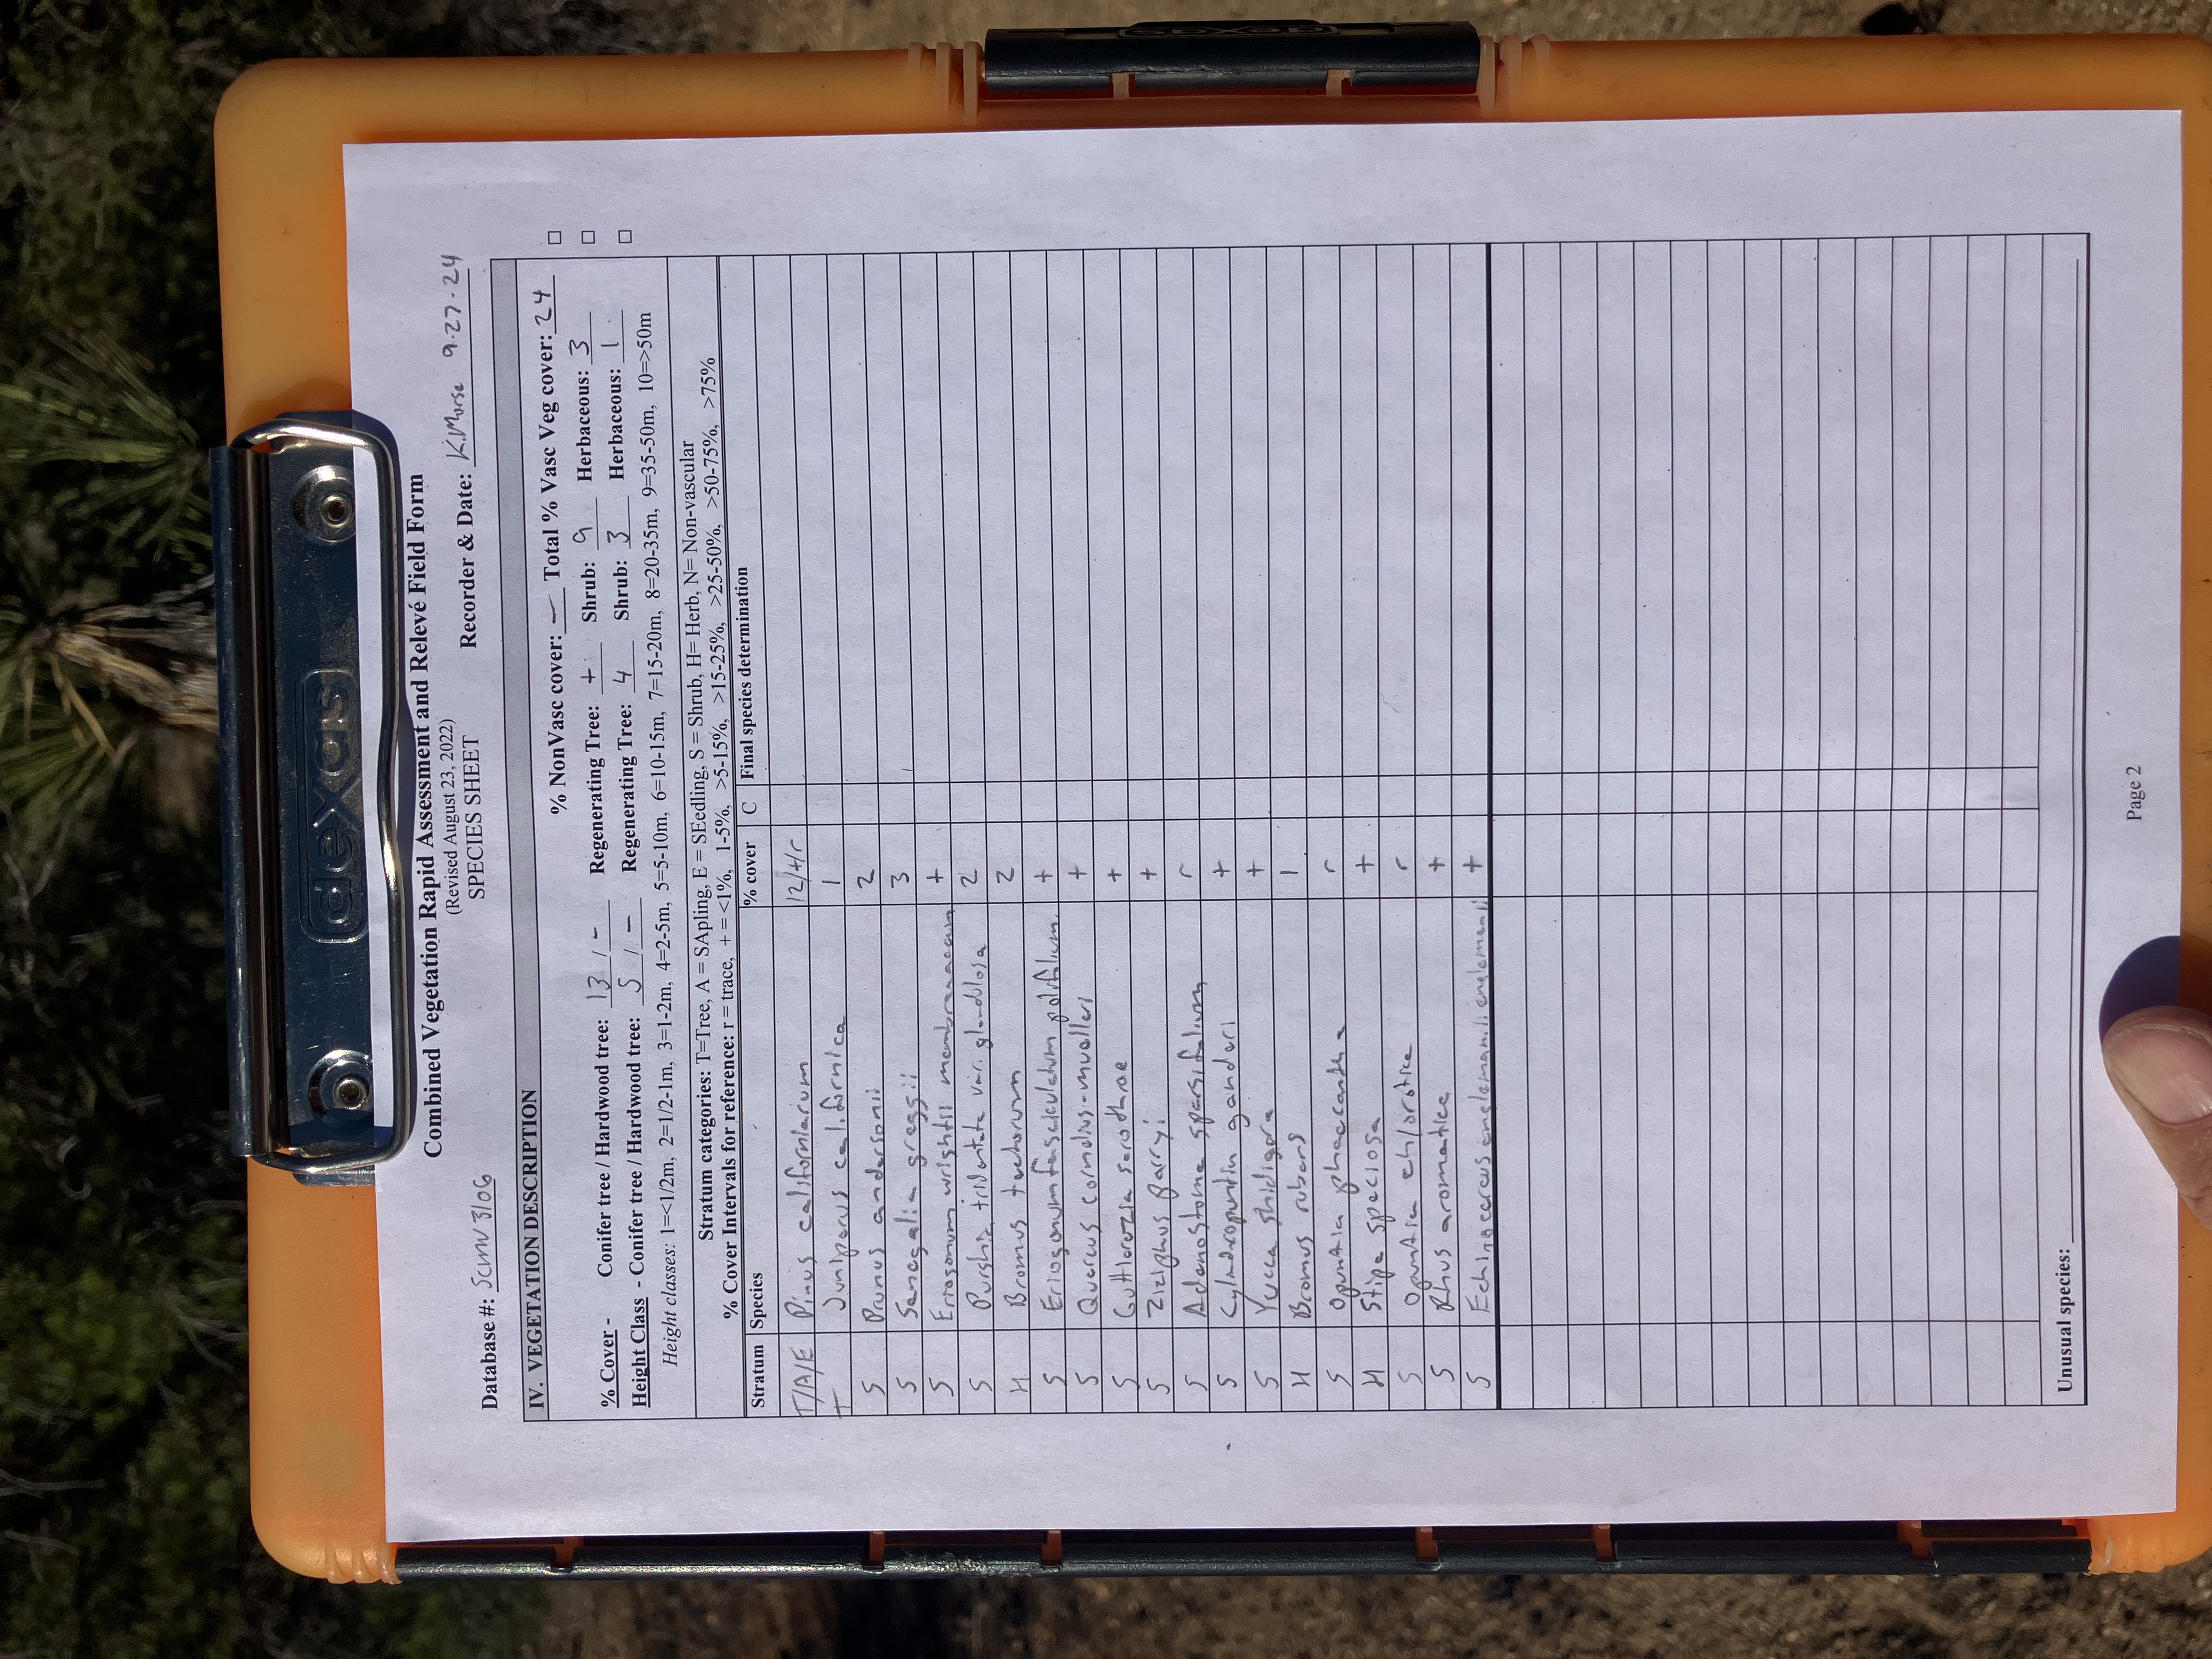 dexas
dexas
Combined Vegetation Rapid Assessment and Relevé Field Form
(Revised August 23, 2022)
SPECIES SHEET
Database #: Scmv3106 Recorder & Date: K.Morse 9-27-24
IV. VEGETATION DESCRIPTION
% NonVasc cover: — Total % Vasc Veg cover: 24
% Cover - Conifer tree / Hardwood tree: 13 / - Regenerating Tree: + Shrub: 9 Herbaceous: 3
Height Class - Conifer tree / Hardwood tree: 5 / - Regenerating Tree: 4 Shrub: 3 Herbaceous: 1
Height classes: 1=<1/2m, 2=1/2-1m, 3=1-2m, 4=2-5m, 5=5-10m, 6=10-15m, 7=15-20m, 8=20-35m, 9=35-50m, 10=>50m
Stratum categories: T=Tree, A = SApling, E = SEedling, S = Shrub, H= Herb, N= Non-vascular
% Cover Intervals for reference: r = trace, + = <1%, 1-5%, >5-15%, >15-25%, >25-50%, >50-75%, >75%
Stratum Species % cover C Final species determination
T/A/E Pinus californiarum 12/+/r
T Juniperus californica 1
S Prunus andersonii 2
S Senegalia greggii 3
S Eriogonum wrightii membranaceum +
S Purshia tridentata var. glandulosa 2
H Bromus tectorum 2
S Eriogonum fasciculatum polifolium +
S Quercus cornelius-muelleri +
S Gutierrezia sarothrae +
S Ziziphus parryi +
S Adenostoma sparsifolium r
S Cylindropuntia ganderi +
S Yucca shidigera +
H Bromus rubens 1
S Opuntia phaecantha r
H Stipa speciosa +
S Opuntia chlorotica r
S Rhus aromatica +
S Echinocereus englemanii englemanii +
Unusual species:
Page 2